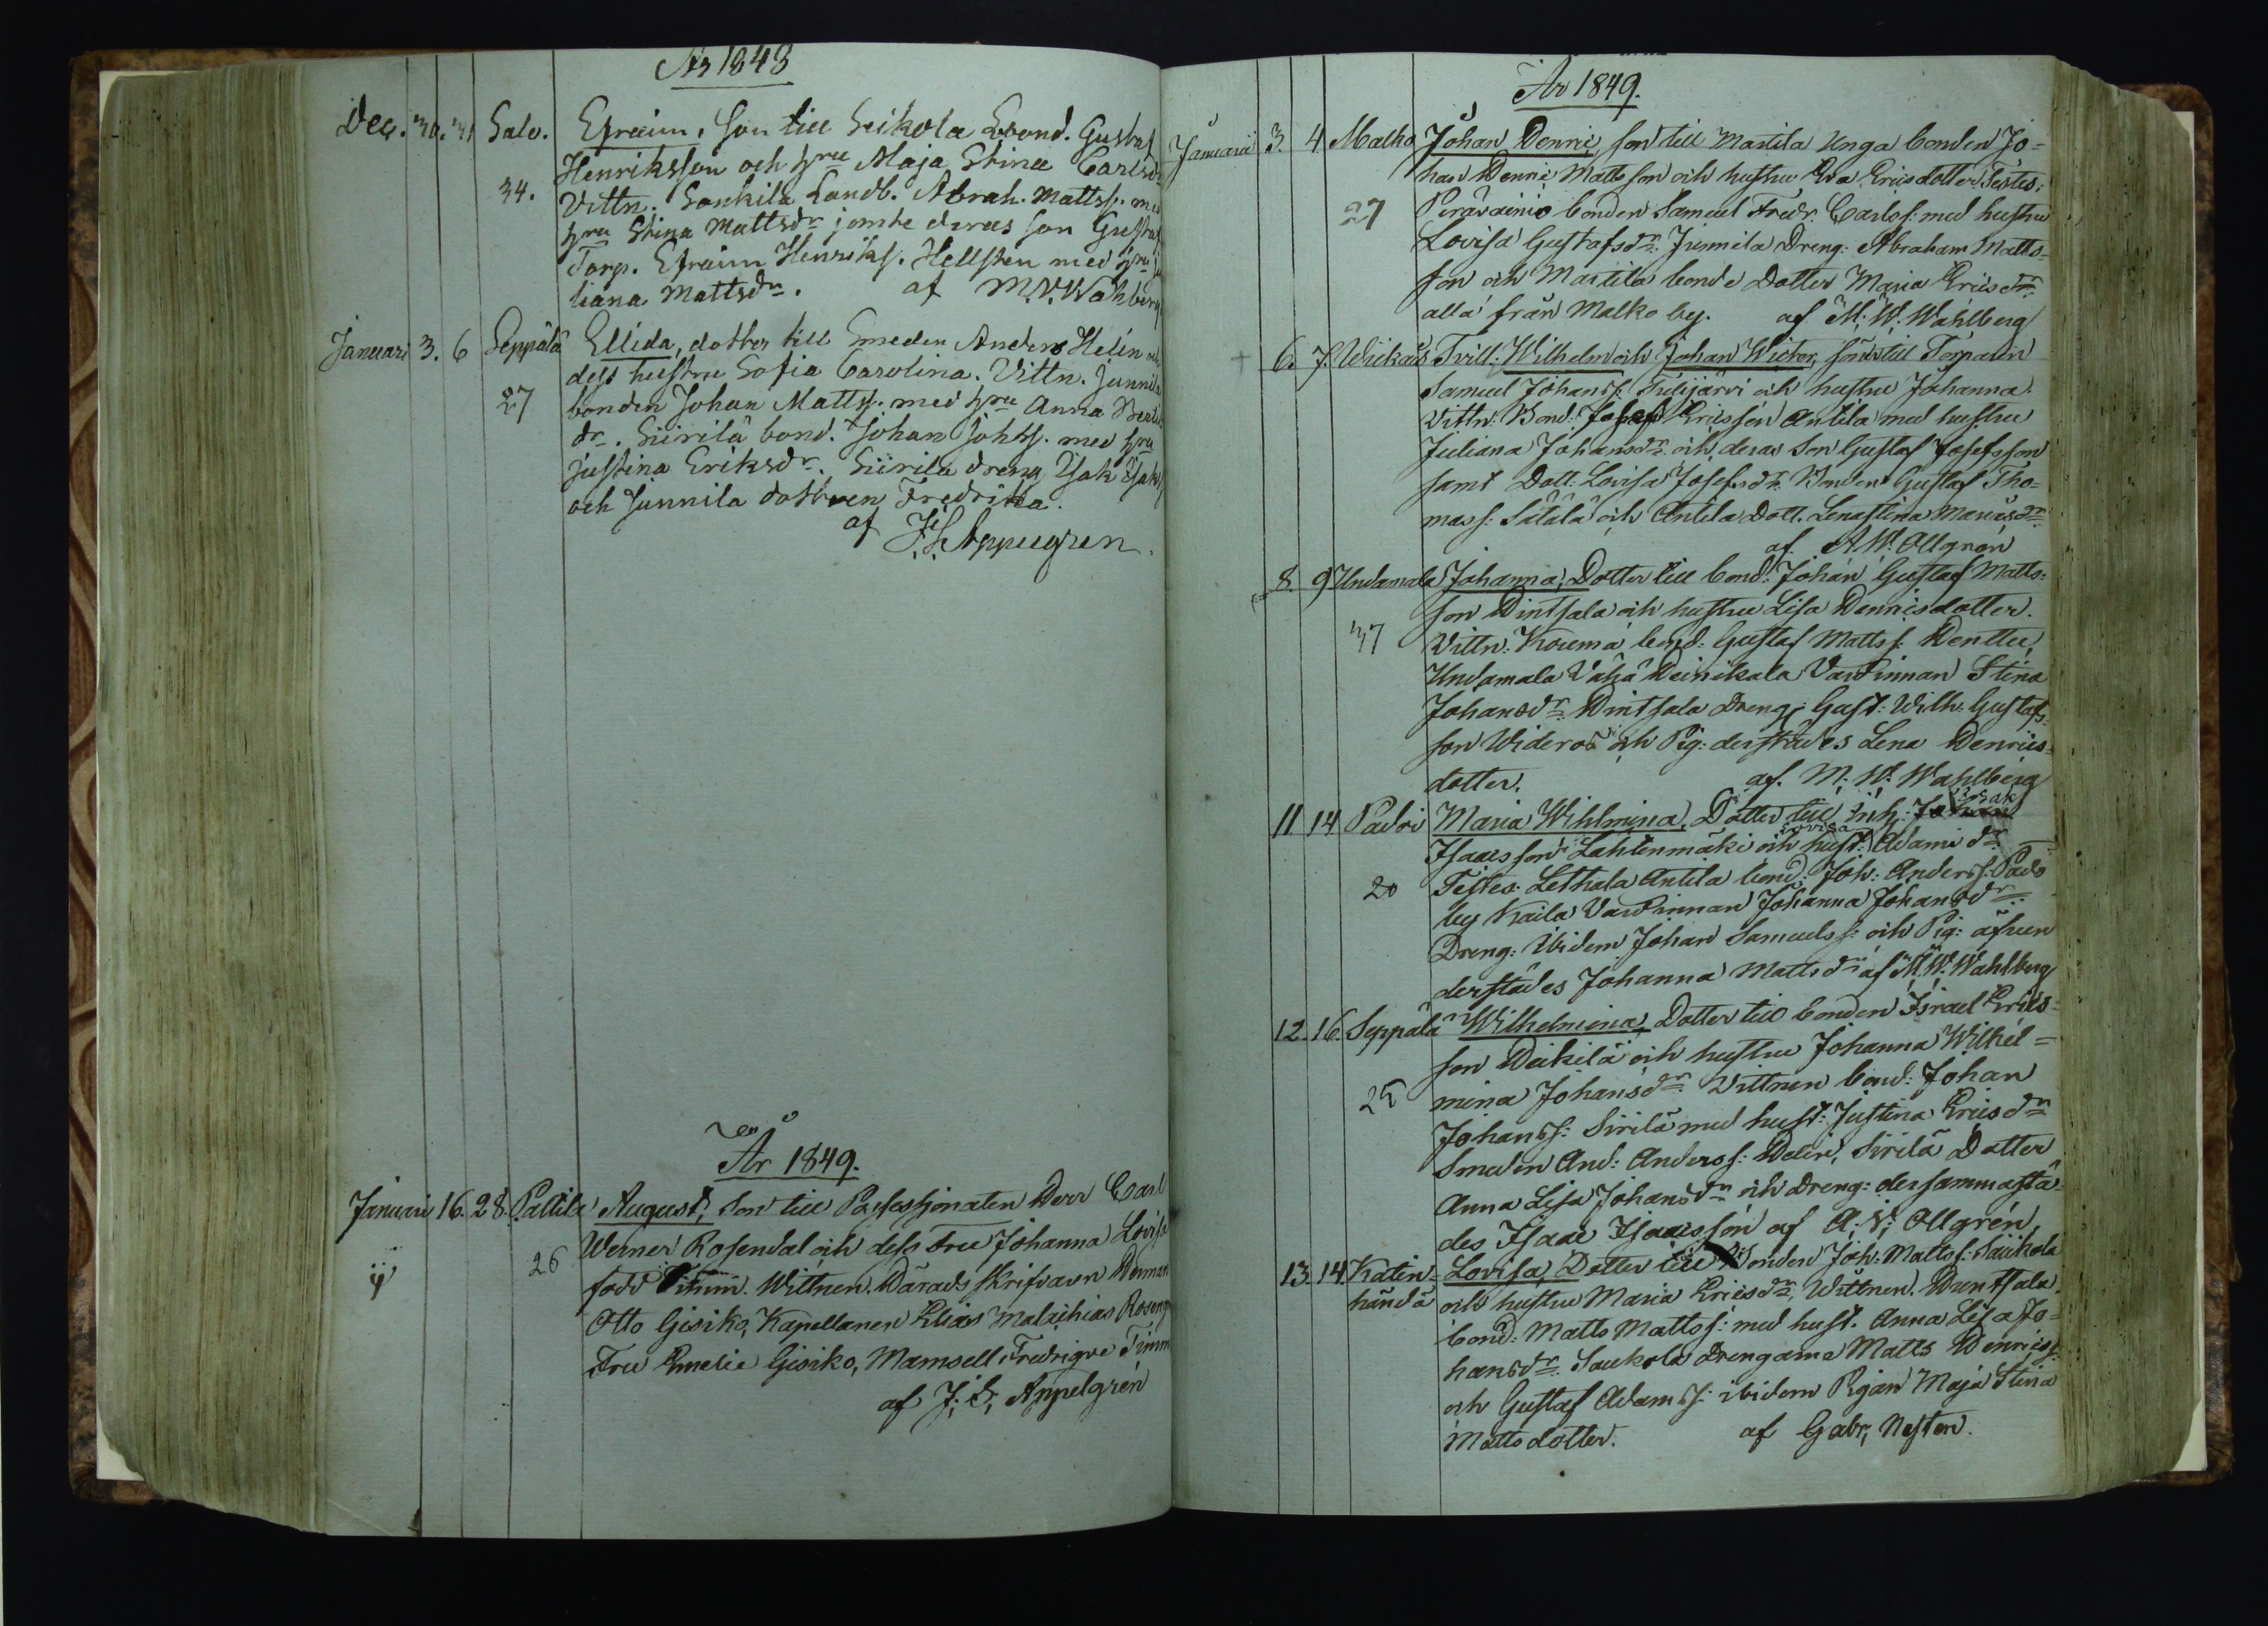 År 1848
Dec. 30. 31 Salo. Efraim, son till Seikola Bond. Gustaf
Henriksson och hru Maja Stina Carlsdr
34. Vittn. Sonkila Landb. Abrah. Mattss. med
hru Stina Mattsdr jemte deras son Gustaf
Torp. Efraim Henrikss. Hellsten med hru Ju
liana Mattsdr. af M. W. Wahlberg
Januari 3. 6 Seppälä Ellida, dotter till Smeden Anders Helin och
dess hustru Sofia Carolina. Vittn. Junnila
27 bonden Johan Mattss. med hru Anna
dr. Siirilä bond. Johan Johss. med hru
Justina Eriksdr. Siirila dreng Isak Isakss
och Junnila dottren Fredrika.
af J. S. Appelgren.
År 1849.
Januari 16. 28. Paltila August, Son till Possessionaten Herr Carl
Werner Rosendal och dess Fru Johanna Lovisa
26 född Timm. Wittnen. Härads skrifvaren Herman
Otto Gisiko, Kapellanen Elias Malachias Roseng
Fru Emelie Gisiko, Mamsell Fredrique Timm
af J. S. Appelgrén
År 1849.
Januarii 3. 4 Malko Johan Henric, son till Martila Unga bonden Jo=
han Henric Matts son och hustru Eva Ericsdotter Testes:
27 Perävainio bonden Samuel Fredr. Carlss: med hustru
Lovisa Gustafsdr: Junnila Dreng: Abraham Matts=
son och Martila bonde Dotter Maria Ericsdr
alla från Malko by. af M. W. Wahlberg
+ 6. 7. Wickais Tvill: Wilhelm och Johan Wictor, söner till Torparen
Samuel Johanss: Tulijärvi och hustru Johanna.
Vittn: Bond: Josef Ericsson Antila med hustru
Juliana Johansdr: och deras Son Gustaf Josefsson
samt Dott: Lovisa Josefsdr. Bonden Gustaf Tho=
mass: Sälälä och Antila Dott. Lenastina
af. A. W. Ollgren
8. 9 Undamala Johanna, Dotter till bond: Johan Gustaf Matts=
son Hintsala och hustru Lisa Henricsdotter.
37 Vittn: Kouma bond: Gustaf Mattss: Henttu,
Undamala Vähä Heinikala Värdinnan Stina
Johansdr: Hintsala Dreng: Gust: Wilh: Gustafs=
son Wideros och Pig: derstädes Lena Henrics=
dotter. af. M. W. Wahlberg
Isak
11 14 Padri Maria Wihlmina, Dotter till inh: Johan
Lovisa
Isaacsson Lahtenmäki och hust: Adami dr
20 Testes: Lethala Antila bond: Joh: Anderss: Pado
by Kaila Värdinnan Johanna Johansdr
Dreng: ibidem Johan Samuelss: och Pig: äfven
derstädes Johanna Mattsdr af M. W. Wahlberg
12. 16. Seppälä Wilhelmina, Dotter till bonden Israel Erics=
son Heikilä och hustru Johanna Wilhel=
25 mina Johansdr: Vittnen bond: Johan
Johanss: Sirilä med hust: Justina Ericsdr
Smeden And: Anderss: Helin, Sirilä Dotter
Anna Lisa Johansdr och dreng: dersammastä=
des Isaac Isaacsson af A. W. Ollgrén,
13. 14. Katin= Lovisa, Dotter till Bonden Joh: Mattss: Saukola
händä och hustru Maria Ericsdr, Wittnen. Huntsala
bond: Matts Mattss: med hust. Anna Lisa Jo=
hansdr. Saukola drengarna Matts Henricss:
och Gustaf Adamss: ibidem Pigan Maja Stina
Mattsdotter. af Gabr. Neston.